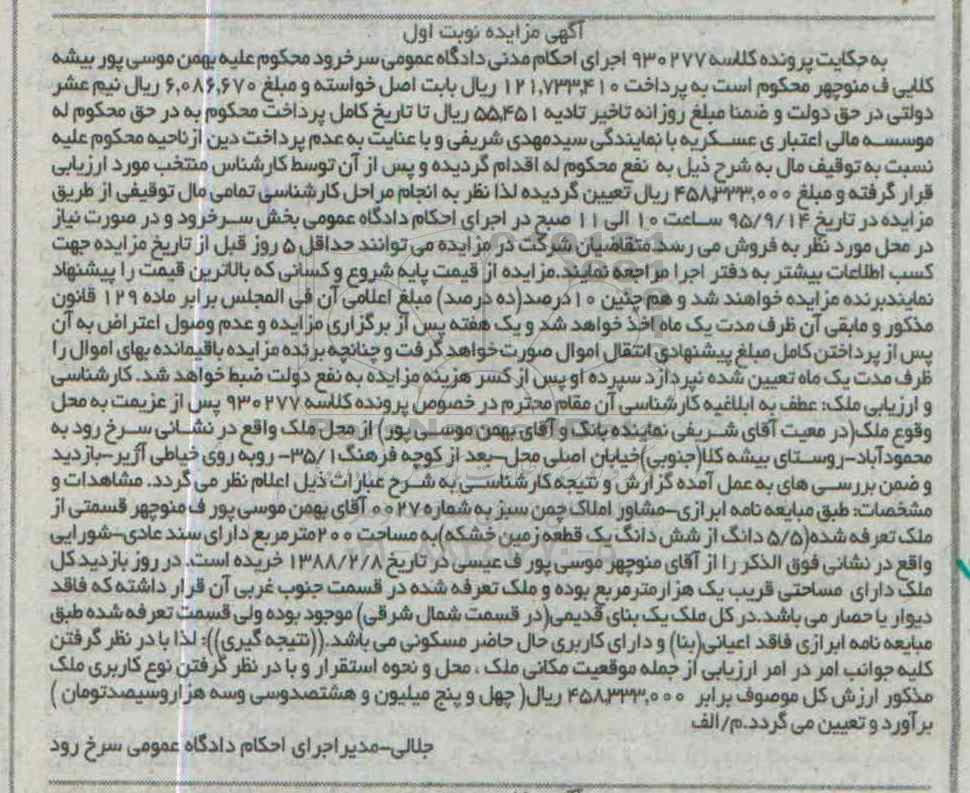 آگهی مزایده نوبت اول
به حکایت پرونده کلاسه ۹۳۰۲۷۷ اجرای احکام مدنی دادگاه عمومی سرخرود محکوم علیه بهمن موسی پور بیشه
کلایی ف منوچهر محکوم است به پرداخت ۱۲۱,۷۳۳,۴۱۰ ریال بابت اصل خواسته و مبلغ ۶,۰۸۶,۶۷۰ ریال نیم عشر
دولتی در حق دولت و ضمنا مبلغ روزانه تاخیر تادیه ۵۵,۴۵۱ ریال تا تاریخ کامل پرداخت محکوم به در حق محکوم له
موسسه مالی اعتباری عسکریه با نمایندگی سیدمهدی شریفی و با عنایت به عدم پرداخت دین از ناحیه محکوم علیه
نسبت به توقیف مال به شرح ذیل به نفع محکوم له اقدام گردیده و پس از آن توسط کارشناس منتخب مورد ارزیابی
قرار گرفته و مبلغ ۴۵۸,۳۳۳,۰۰۰ ریال تعیین گردیده لذا نظر به انجام مراحل کارشناسی تمامی مال توقیفی از طریق
مزایده در تاریخ ۹۵/۹/۱۴ ساعت ۱۰ الی ۱۱ صبح در اجرای احکام دادگاه عمومی بخش سرخرود و در صورت نیاز
در محل مورد نظر به فروش می رسد.متقاضیان شرکت در مزایده می توانند حداقل ۵ روز قبل از تاریخ مزایده جهت
کسب اطلاعات بیشتر به دفتر اجرا مراجعه نمایند.مزایده از قیمت پایه شروع و کسانی که بالاترین قیمت را پیشنهاد
نمایندبرنده مزایده خواهند شد و هم چنین ۱۰درصد(ده درصد) مبلغ اعلامی آن فی المجلس برابر ماده ۱۲۹ قانون
مذکور و مابقی آن ظرف مدت یک ماه اخذ خواهد شد و یک هفته پس از برگزاری مزایده و عدم وصول اعتراض به آن
پس از پرداختن کامل مبلغ پیشنهادی انتقال اموال صورت خواهد گرفت و چنانچه برنده مزایده باقیمانده بهای اموال را
ظرف مدت یک ماه تعیین شده نپردازد سپرده او پس از کسر هزینه مزایده به نفع دولت ضبط خواهد شد. کارشناسی
و ارزیابی ملک: عطف به ابلاغیه کارشناسی آن مقام محترم در خصوص پرونده کلاسه ۹۳۰۲۷۷ پس از عزیمت به محل
وقوع ملک(در معیت آقای شریفی نماینده بانک و آقای بهمن موسی پور) از محل ملک واقع در نشانی سرخ رود به
محمودآباد-روستای بیشه کلا(جنوبی)خیابان اصلی محل-بعد از کوچه فرهنگ۳۵/۱- روبه روی خیاطی آژیر-بازدید
و ضمن بررسی های به عمل آمده گزارش و نتیجه کارشناسی به شرح عبارات ذیل اعلام نظر می گردد. مشاهدات و
مشخصات: طبق مبایعه نامه ابرازی-مشاور املاک چمن سبز به شماره ۰۰۲۷ آقای بهمن موسی پور ف منوچهر قسمتی از
ملک تعرفه شده(۵/۵ دانگ از شش دانگ یک قطعه زمین خشکه)به مساحت ۲۰۰مترمربع دارای سند عادی-شورایی
واقع در نشانی فوق الذکر را از آقای منوچهر موسی پور ف عیسی در تاریخ ۱۳۸۸/۲/۸ خریده است. در روز بازدید کل
ملک دارای مساحتی قریب یک هزارمترمربع بوده و ملک تعرفه شده در قسمت جنوب غربی آن قرار داشته که فاقد
دیوار یا حصار می باشد.در کل ملک یک بنای قدیمی(در قسمت شمال شرقی) موجود بوده ولی قسمت تعرفه شده طبق
مبایعه نامه ابرازی فاقد اعیانی(بنا) و دارای کاربری حال حاضر مسکونی می باشد.((نتیجه گیری)): لذا با در نظر گرفتن
کلیه جوانب امر در امر ارزیابی از جمله موقعیت مکانی ملک ، محل و نحوه استقرار و با در نظر گرفتن نوع کاربری ملک
مذکور ارزش کل موصوف برابر ۴۵۸,۳۳۳,۰۰۰ ریال( چهل و پنج میلیون و هشتصدوسی وسه هزاروسیصدتومان )
برآورد و تعیین می گردد.م/الف
جلالی-مدیراجرای احکام دادگاه عمومی سرخ رود